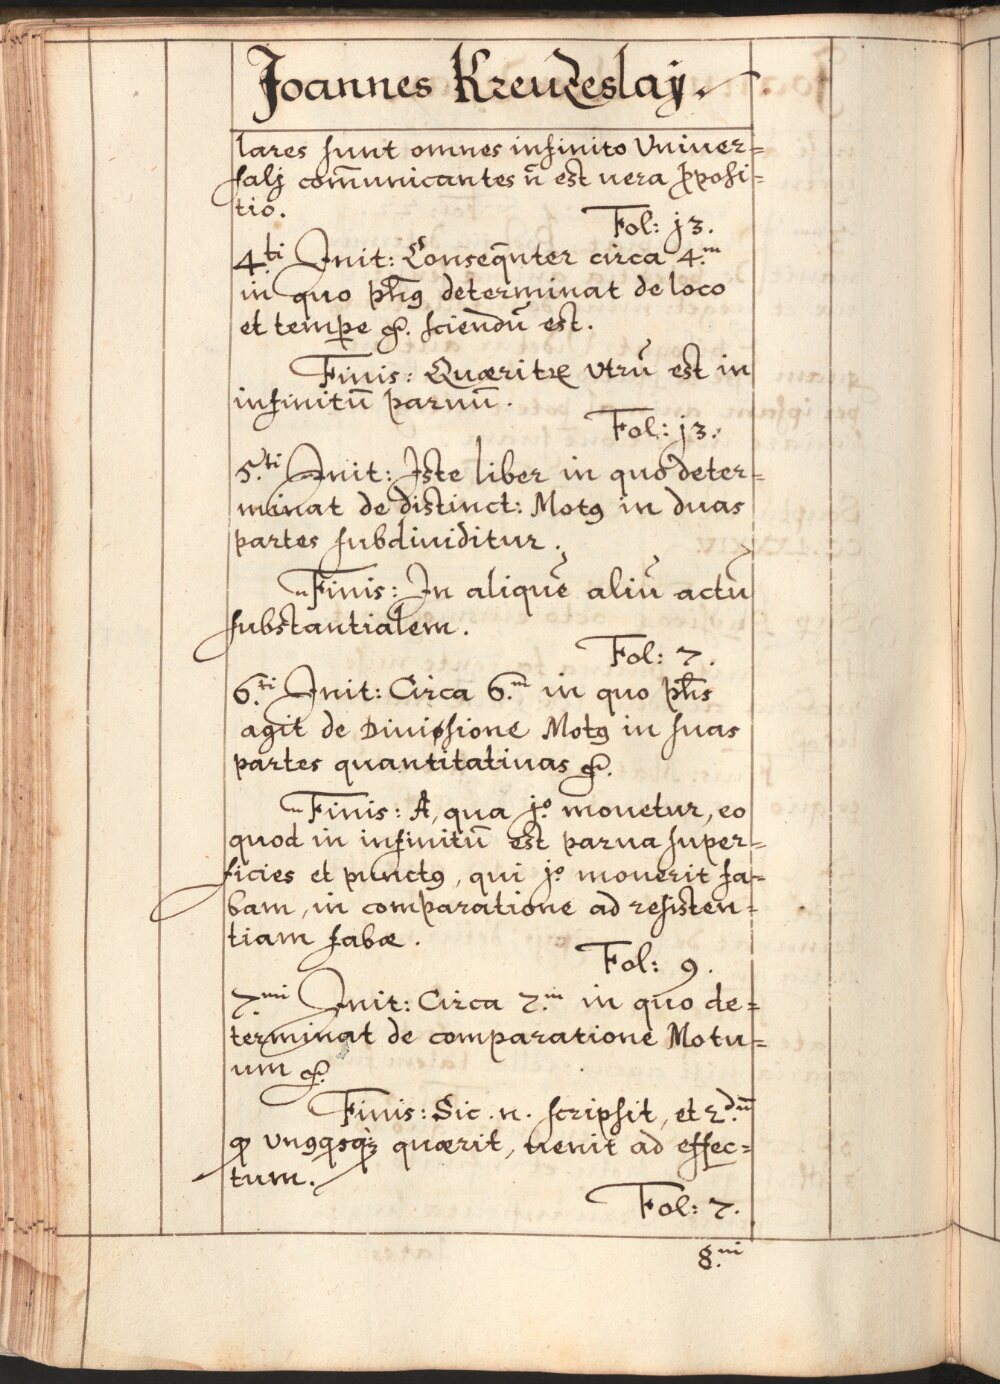 Joannes Kreuzeslaÿ.
lares sunt omnes infinito Vniuer=
salj com̄unicantes n̄ est uera p̱posi=
tio.
Fol: j3.
4.ti Jnit: Conseq̄nter circa 4.m
in quo ph̄9 determinat de loco
et temp̱e &c. sciendū est.
Finis: Quæritꝝ vtrū est in
infinitū paruū.
Fol: j3.
5.ti Jnit: Iste liber in quo deter=
minat de distinct: Mot9 in duas
partes subdiuiditur.
Finis: In aliquē aliū actū
substantialem.
Fol: 7.
6.ti Jnit: Circa 6.m in quo ph̄s
agit de Diuisione Mot9 in suas
partes quantitatiuas &c.
Finis: A, qua j.o mouetur, eo
quod in infinitū est parua super=
ficies et punct9, qui j.o mouerit fa=
bam, in comparatione ad resisten=
tiam fabæ.
Fol: 9.
7.mi Jnit: Circa 7.m in quo de=
terminat de comparatione Motu=
um &c.
Finis: Sic .n. scripsit, et 2.dū
ꝙ vn9qsqꝫ quærit, uenit ad effec=
tum.
Fol: 7.
8.ui